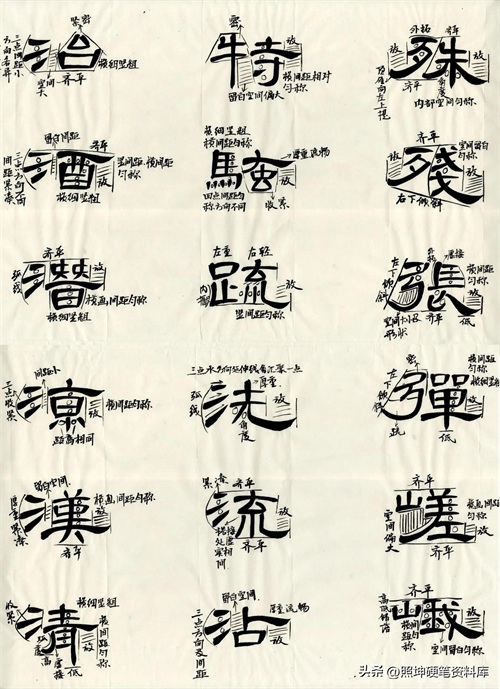 紧密
三点间距小
方向各异
治
空间大
齐平
横细竖粗
密
特
放
横间距相对匀称
留白空间偏大
外拓
齐平
放
殊
放
齐平
角度
内部空间匀称
留白间距
齐平
三点方向不同
间距紧凑
酒
竖间距、横间距匀称
横细竖粗
横细竖粗
横间距匀称
厚重流畅
放
四点间距匀称方向不同
收紧
齐平
空间留白匀称
放
殘
放
右下倾斜
齐平
弧线
潛
放
横画间距匀称
横细竖粗
左重
右轻
疏
放
竖间距匀称
左下倾斜
外拓
张
横间距匀称
放
齐平
低
间距小
三点收紧
涼
横间距匀称
放
距离相同
三点水方向延伸线各汇聚一点
厚重
弧线
法
放
角度
密
左下倾斜
彈
横间距匀称
横细竖粗
放
疏
低
留白空间
厚重紧凑
漢
横画间距匀称
放
齐平
紧凑
齐平
流
放
搭接处虚实相同
齐平
齐平
空间偏大
嵯
横画间距匀称
放
齐平
收紧
横细竖粗
清
放
横间距匀称
弧度高
虚接
低
留白空间
厚重流畅
三点方向及间距
沾
放
齐平
高低错落
峨
放
横间距匀称
空间留白匀称
头条 @照坤硬笔资料库